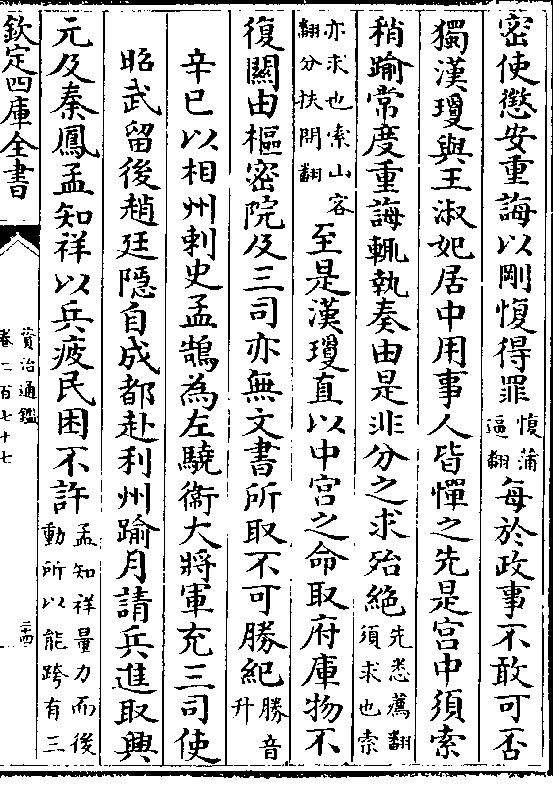 密使懲安重誨以剛愎得罪愎蒲逼翻每於政事不敢可否
獨漢瓊與王淑妃居中用事人皆憚之先是宮中須索
稍踰常度重誨輒執奏由是非分之求殆絶先悉薦翻須求也索
亦求也索山客翻分扶問翻至是漢瓊直以中宮之命取府庫物不
復關由樞密院及三司亦無文書所取不可勝紀勝音升
辛巳以相州刺史孟鵠為左驍衞大將軍充三司使
昭武留後趙廷隱自成都赴利州踰月請兵進取興
元及秦鳳孟知祥以兵疲民困不許孟知祥量力而後動所以能跨有三
欽定四庫全書
資治通鑑
卷二百七十七
三十四